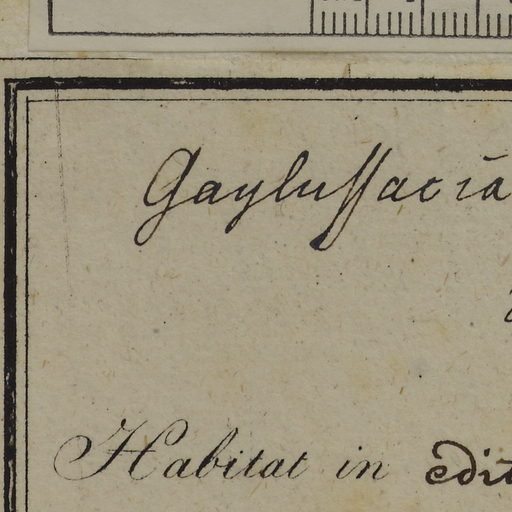 Gaylussacia
Habitat in edit